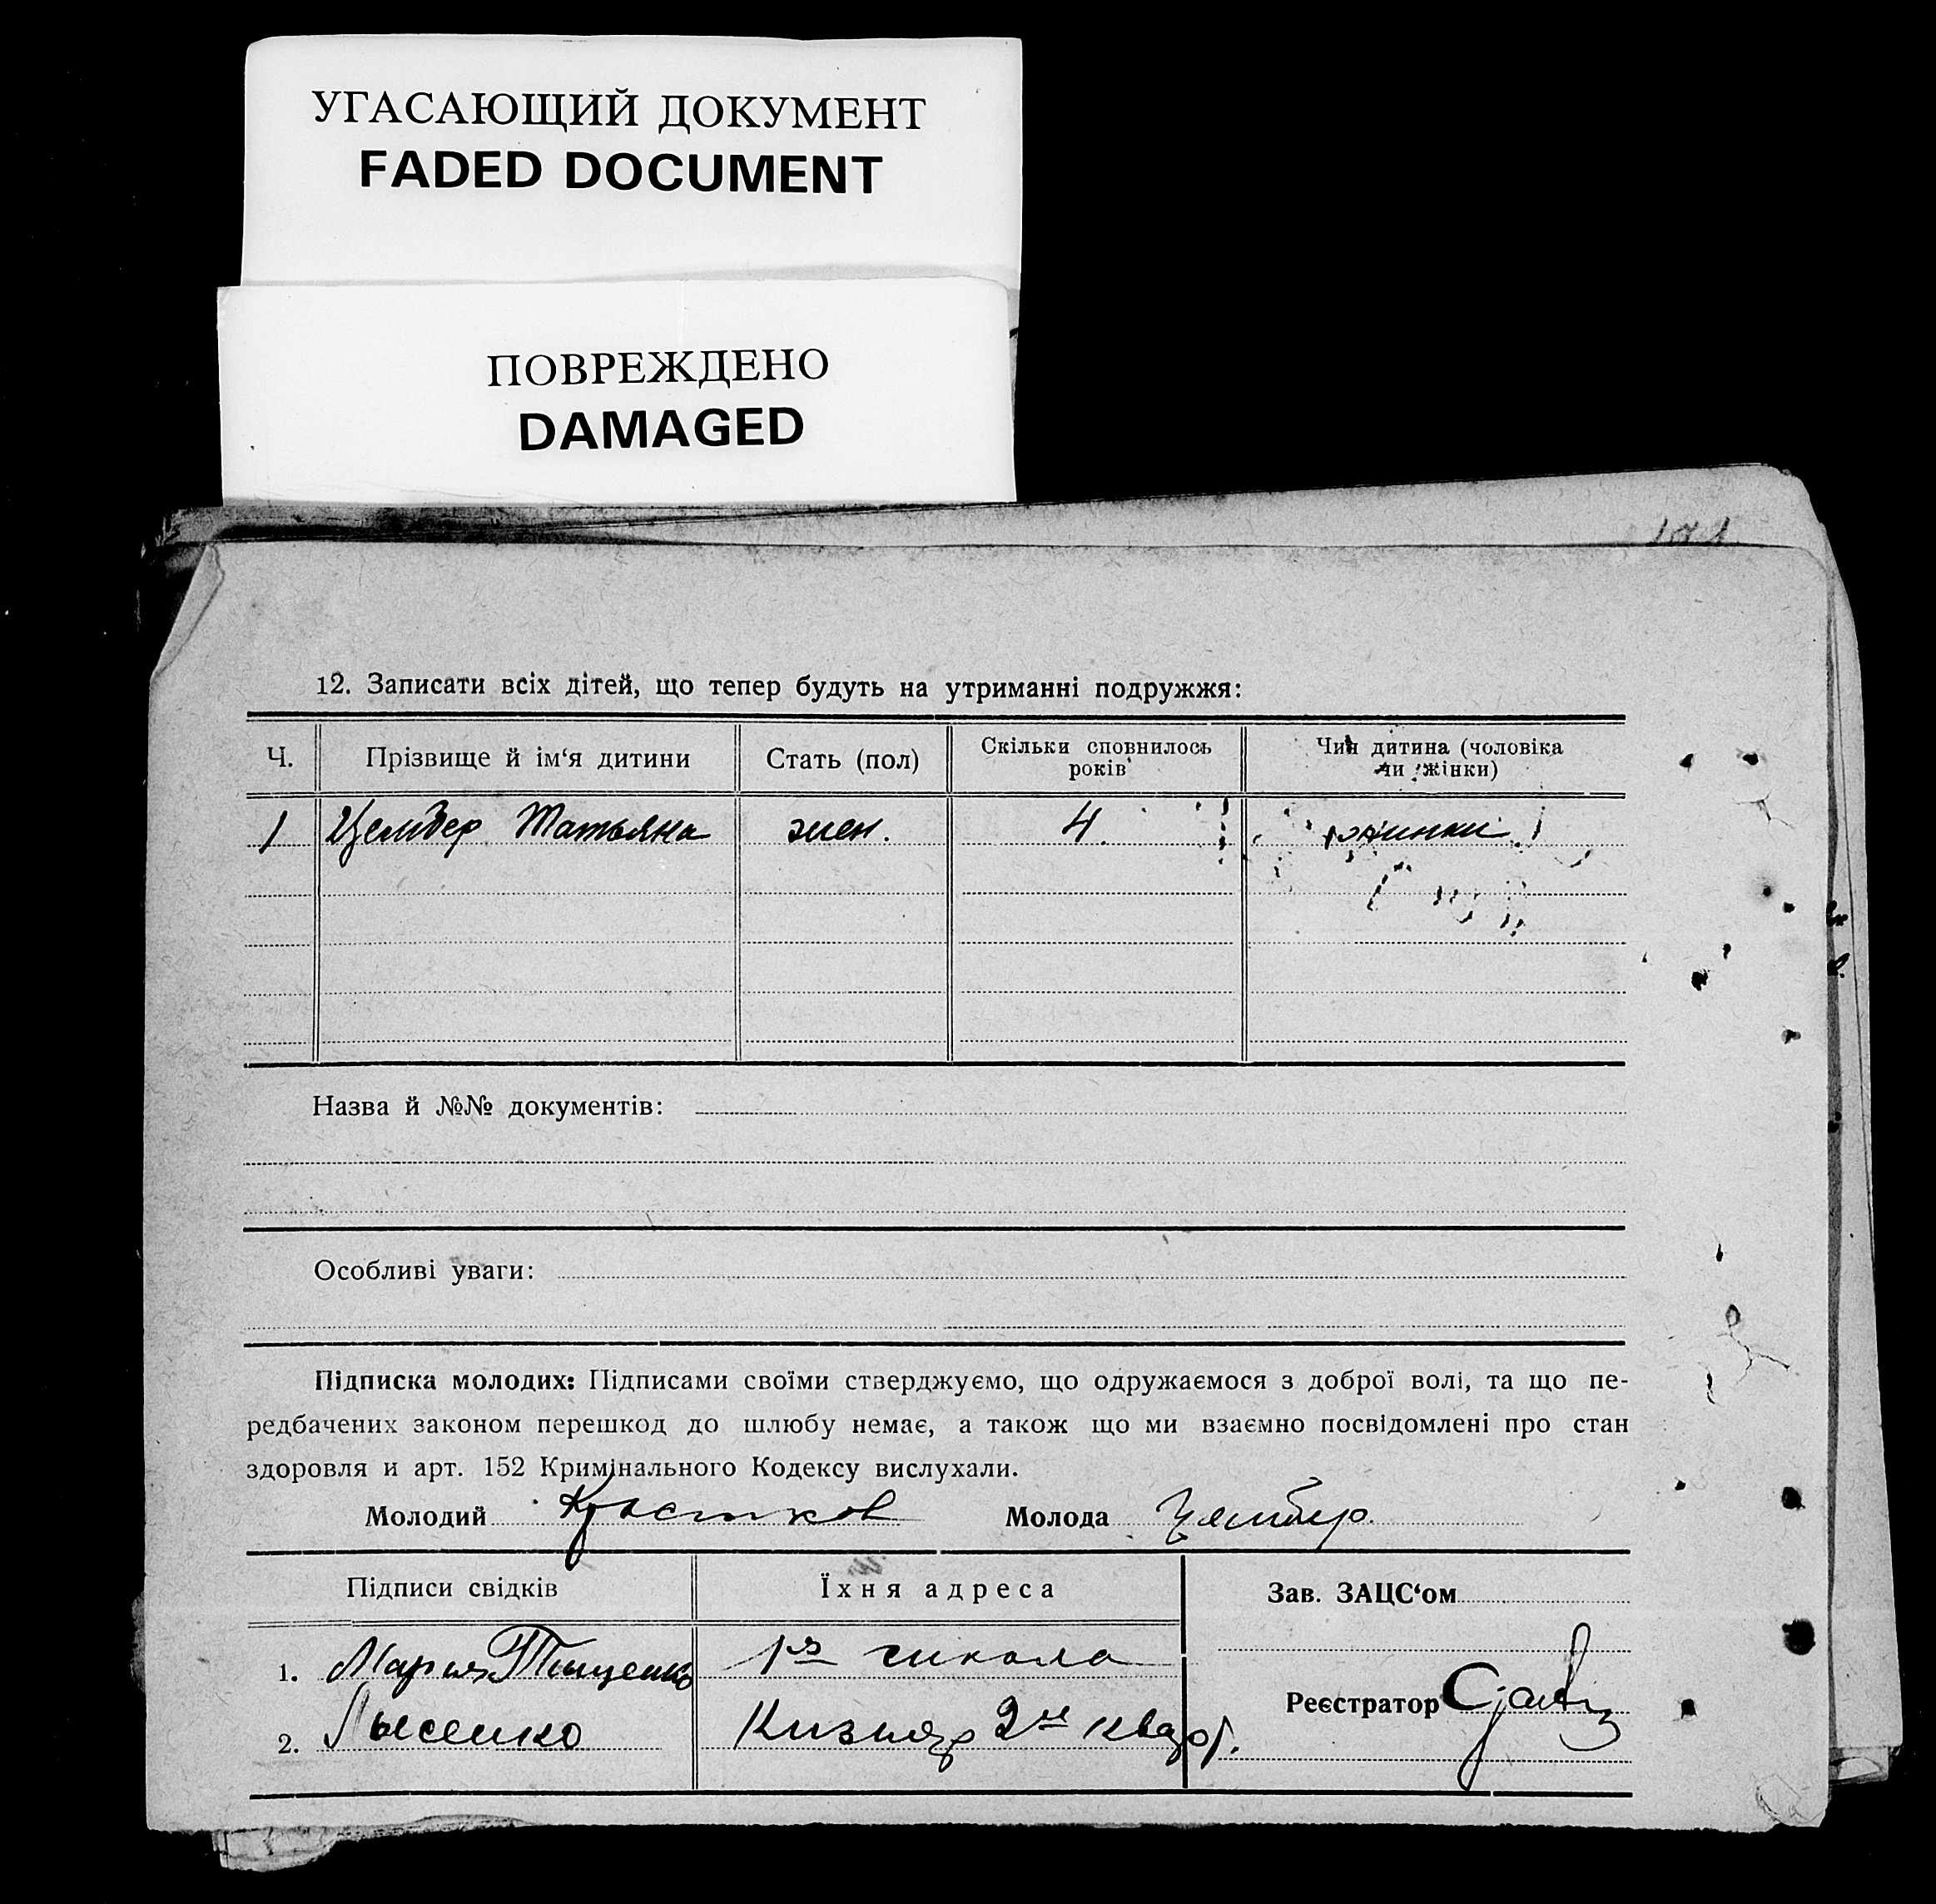 УГАСАЮЩИЙ ДОКУМЕНТ
FADED DOCUMENT
ПОВРЕЖДЕНО
DAMAGED
12. Записати всіх дітей, що тепер будуть на утриманні подружжя:
Ч. Прізвище й ім‘я дитини Стать (пол) Скільки сповнилось років Чия дитина (чоловіка чи жінки)
1 Цембер Татьяна жен. 4. жинки
Назва й №№ документів:
Особливі уваги:
Підписка молодих: Підписами своїми стверджуємо, що одружаємося з доброї волі, та що пе-
редбачених законом перешкод до шлюбу немає, а також що ми взаємно посвідомлені про стан
здоровля и арт. 152 Кримінального Кодексу вислухали.
Молодий Молода Цембер
Підписи свідків Їхня адреса Зав. ЗАЦС‘ом
1. Мария Тищенко 1ʳᵃ школа
Реєстратор
2. Лысенко 2й кварт.